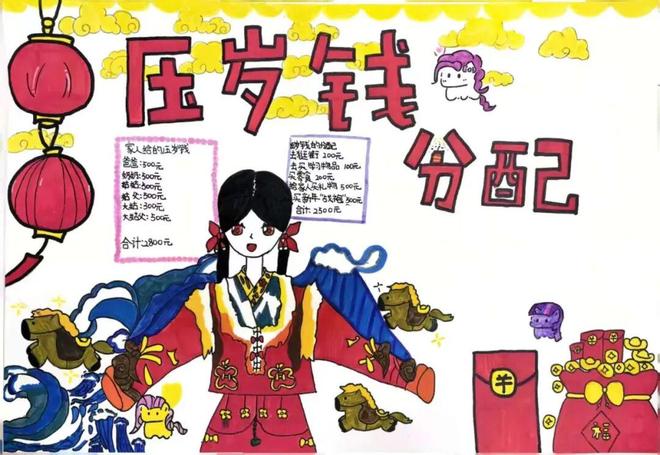 压岁钱
分配
家人给的压岁钱
爸爸:500元
奶奶:500元
姑姑:500元
姑父:500元
大姑:300元
大姑父:500元
合计:2800元
岁钱的分配
去逛街 200元
去买学习物品 100元
买零食 200元
给家人买礼物 500元
买新年
300元
合计:2500元
福